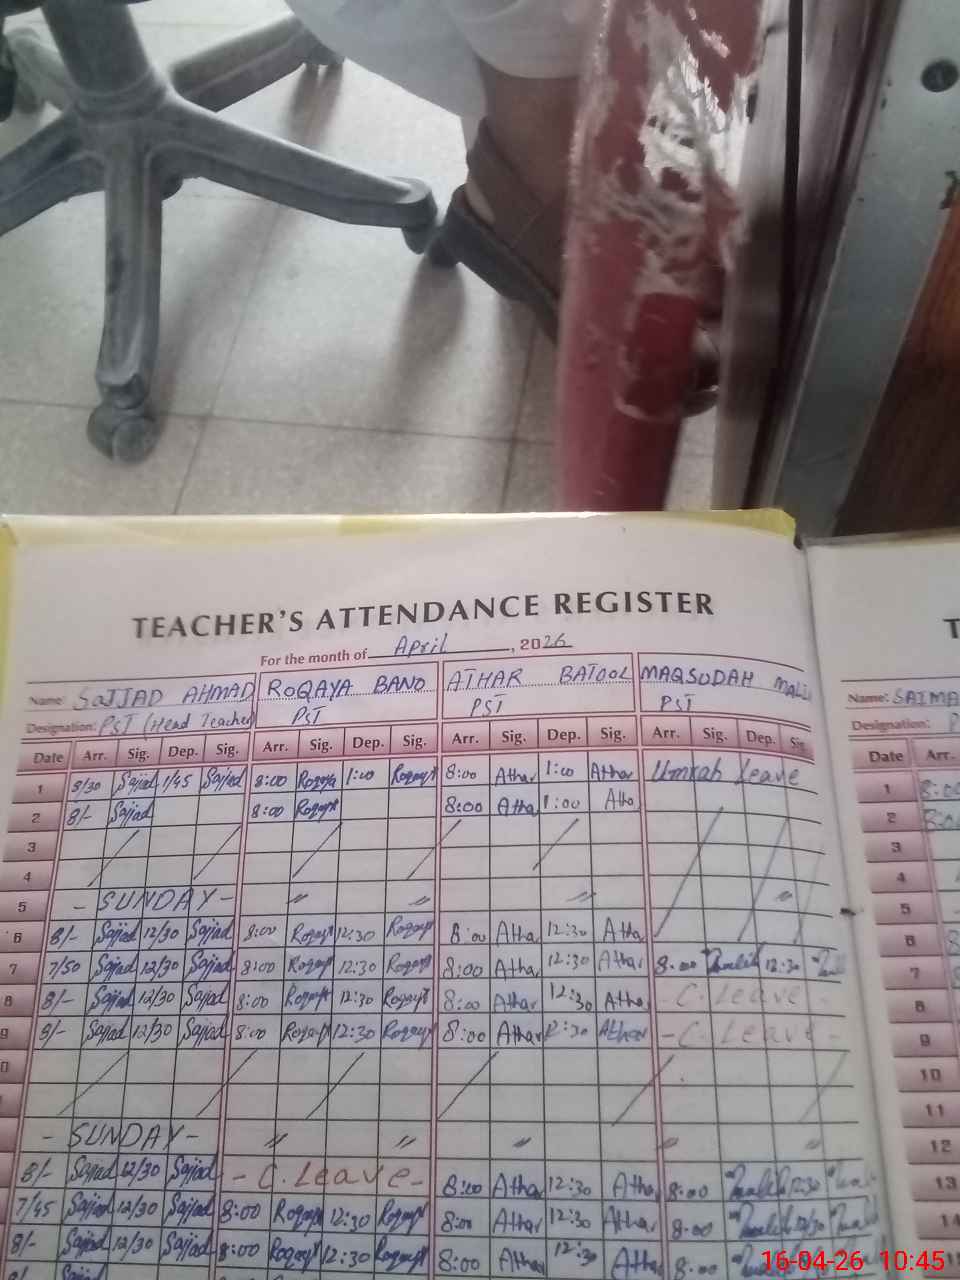 TEACHER'S ATTENDANCE REGISTER
For the month of April, 2026
Name: SAJJAD AHMAD ROQAYA BANO ATHAR BATOOL MAQSUDAH Name: SAIMA
Designation: PST (Head Teacher PST PST PST Designation: P
Date Arr. Sig. Dep. Sig. Arr. Sig. Dep. Sig. Arr. Sig. Dep. Sig. Arr. Sig. Dep. Sig. Date Arr.
1 8/30 Sajjad 1/45 Sajjad 8:00 Roqaya 1:00 Roqaya 8:00 Athar 1:00 Athar Umrah Leave 1 8:00
2 8/- Sajjad 8:00 Roqaya 8:00 Atha 1:00 Atha 2 8:00
3 3
4 4
5 - SUNDAY - 〃 〃 〃 〃 5
6 8/- Sajjad 12/30 Sajjad 8:00 Roqaya 12:30 Roqaya 8:00 Atha 12:30 Atha 6 8
7 7/50 Sajjad 12/30 Sajjad 8:00 Roqaya 12:30 Roqaya 8:00 Atha 12:30 Athar 8:00 Malik 12:30 7 8
8 8/- Sajjad 12/30 Sajjad 8:00 Roqaya 12:30 Roqaya 8:00 Athar 12:30 Atha - C. Leave 8
9 8/- Sajjad 12/30 Sajjad 8:00 Roqaya 12:30 Roqaya 8:00 Athar 12:30 Athar - C. Leave - 9
0 10
11
- SUNDAY - 〃 〃 〃 〃 〃 12
8/- Sajjad 12/30 Sajjad - C. Leave - 8:00 Atha 12:30 Atha 8:00 Malik 12:30 13
7/45 Sajjad 12/30 Sajjad 8:00 Roqaya 12:30 Roqaya 8:00 Athar 12:30 Athar 8:00 Malik 12/30 Malik 14
8/- Sajjad 12/30 Sajjad 8:00 Roqaya 12:30 Roqaya 8:00 Athar 12:30 Atha 8:00
16-04-26 10:45